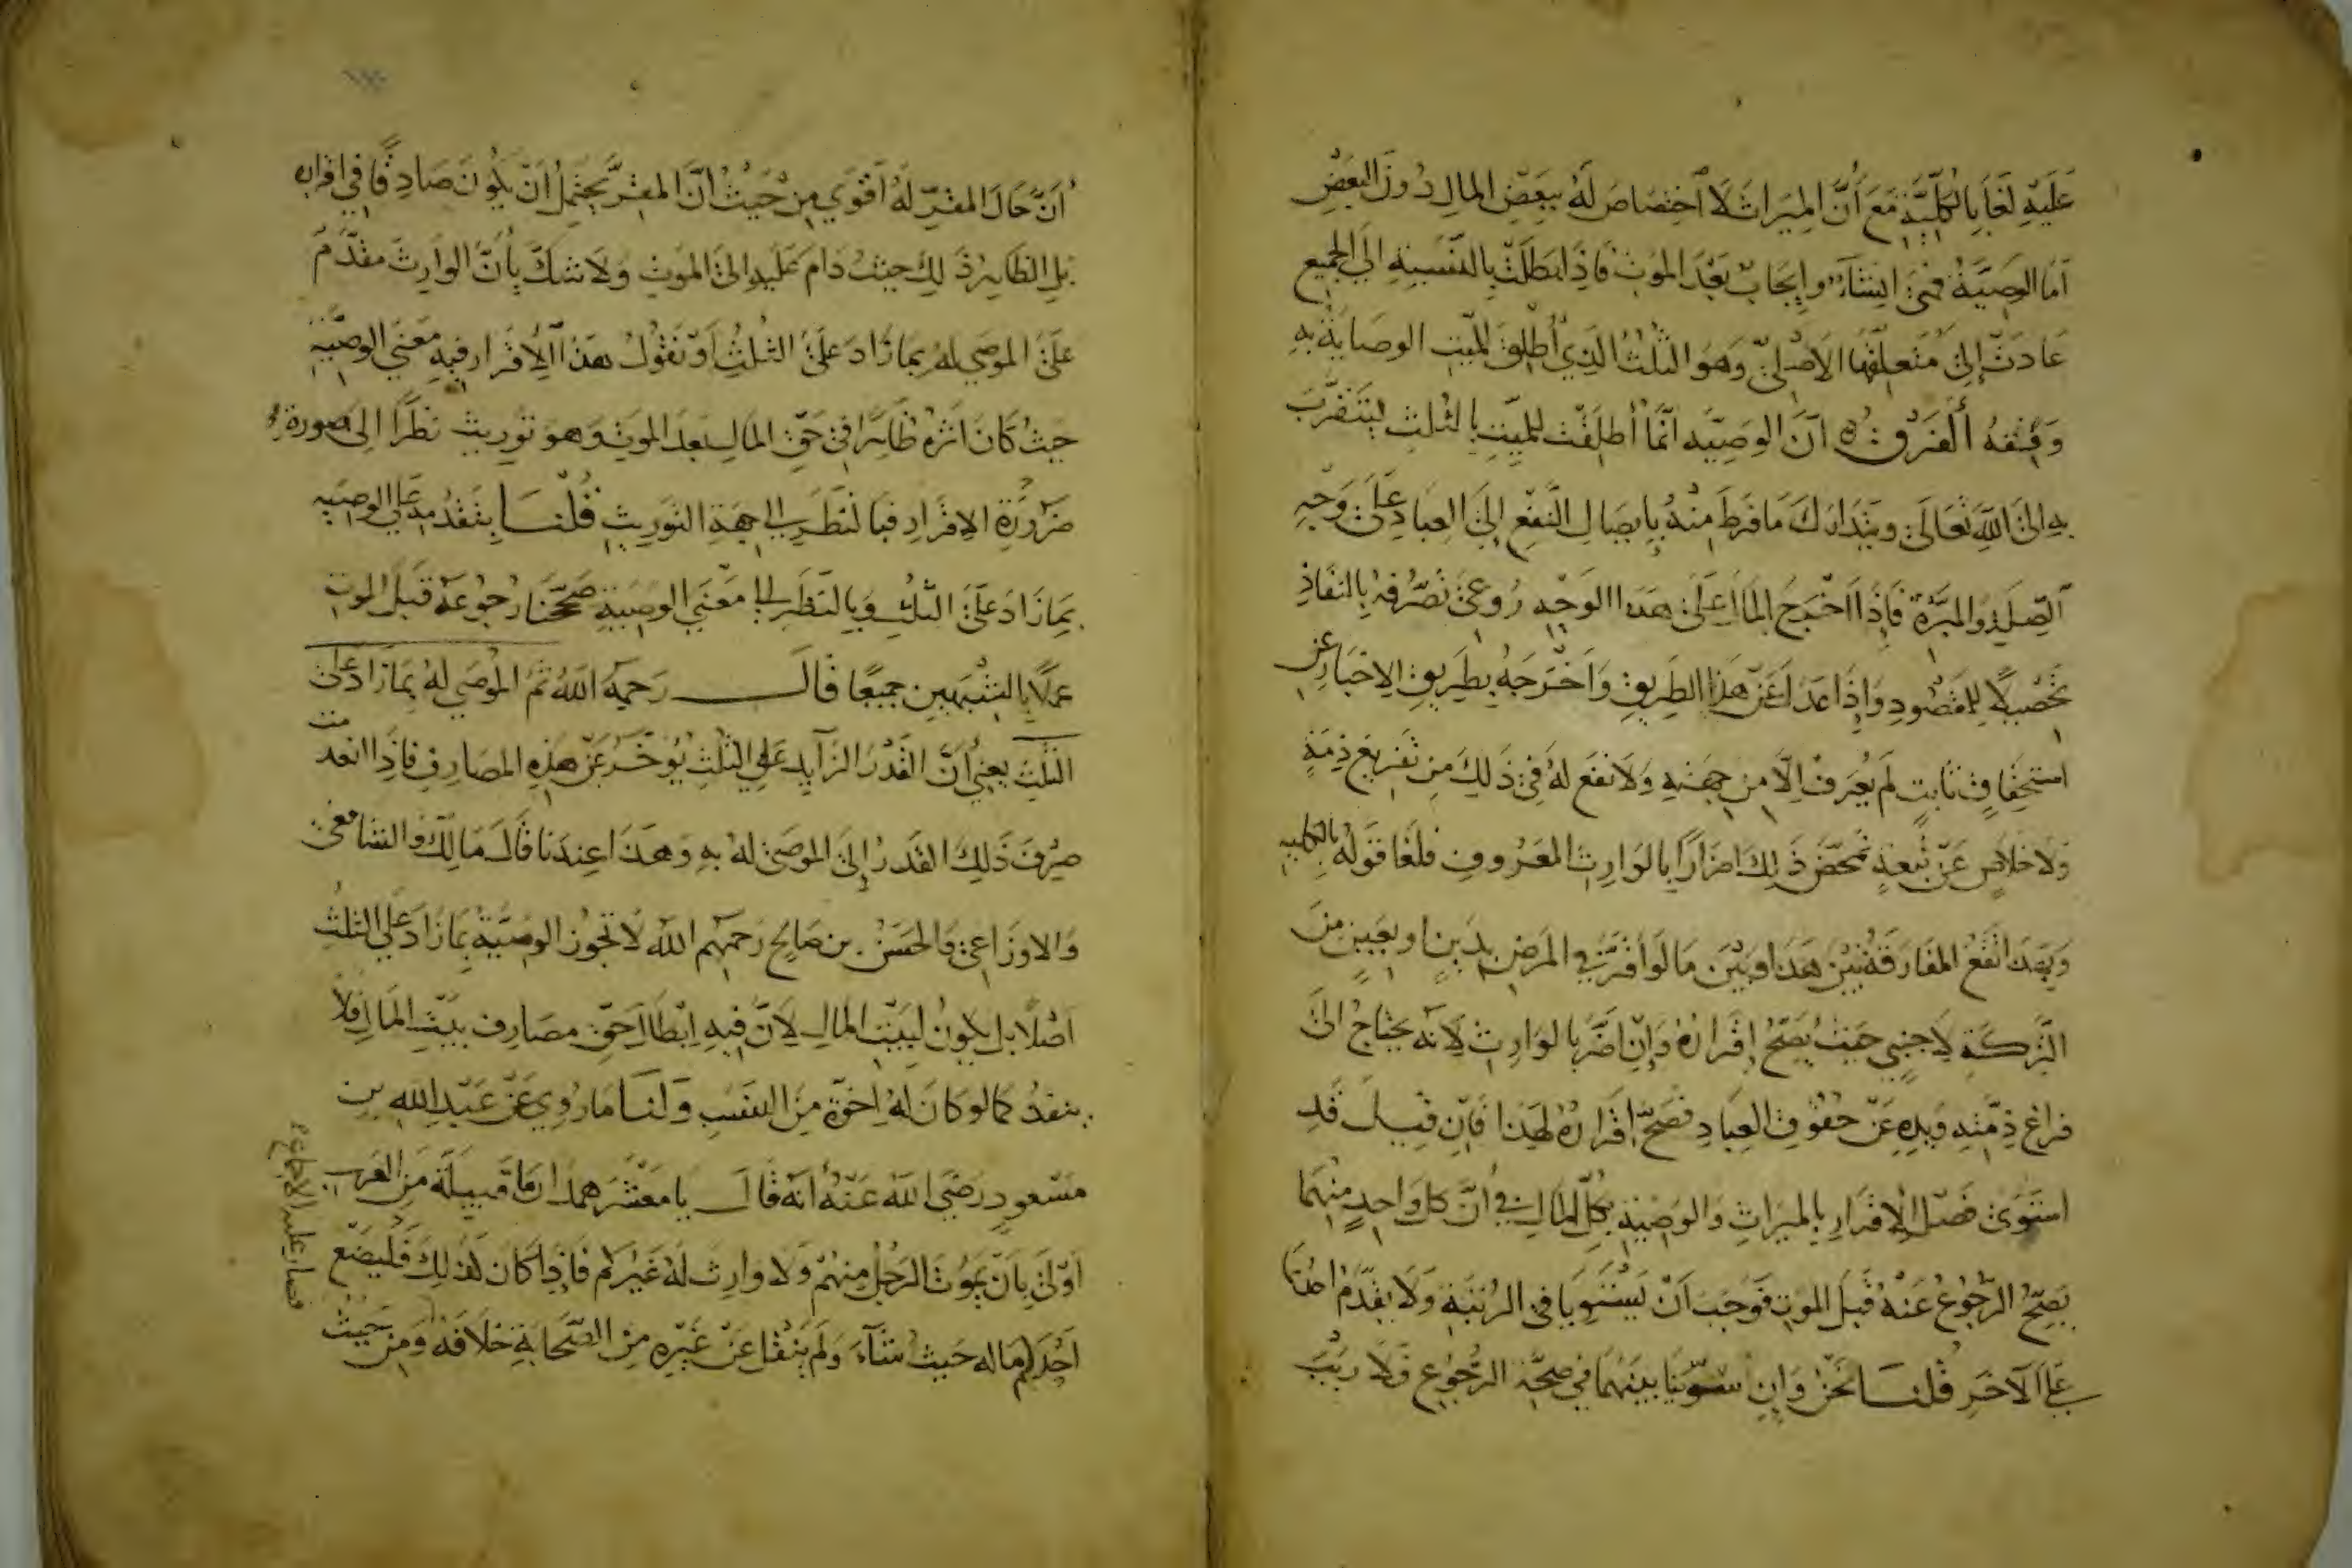 عَلَيْهِ لَغَا بِالْكُلِّيَّةِ مَعَ أَنَّ الْمِيرَاثَ لَا اخْتِصَاصَ لَهُ بِبَعْضِ الْمَالِ دُونَ الْبَعْضِ
أَمَّا الْوَصِيَّةُ فَهِيَ إِنْشَاءٌ وَإِيجَابٌ بَعْدَ الْمَوْتِ فَإِذَا بَطَلَتْ بِالنِّسْبَةِ إِلَى الْجَمِيعِ
عَادَتْ إِلَى مُتَعَلَّقِهَا الْأَصْلِيِّ وَهُوَ الثُّلُثُ الَّذِي أُطْلِقَ لِلْمَيِّتِ الوصاية بِهِ
وَفِقْهُ الْفَرْقِ أَنَّ الْوَصِيَّةَ إِنَّمَا أُطْلِقَتْ لِلْمَيِّتِ بِالثُّلُثِ لِيَتَقَرَّبَ
بِهِ إِلَى اللَّهِ تَعَالَى وَيَتَدَارَكَ مَا فَرَطَ مِنْهُ بِإِيصَالِ النَّفْعِ إِلَى الْعِبَادِ عَلَى وَجْهِ
الصِّلَةِ وَالْمَبَرَّةِ فَإِذَا أَخْرَجَ الْمَالَ عَلَى هَذَا الْوَجْهِ رُوعِيَ تَصَرُّفُهُ بِالنَّفَاذِ
تَحْصِيلًا لِلْمَقْصُودِ وَإِذَا عَدَلَ عَنْ هَذَا الطَّرِيقِ وَأَخْرَجَهُ بِطَرِيقِ الْإِخْبَارِ عَنِ
اسْتِحْقَاقٍ ثَابِتٍ لَمْ يُعْرَفْ إِلَّا مِنْ جِهَتِهِ وَلَا نَفْعَ لَهُ فِي ذَلِكَ مِنْ تَفْرِيغِ ذِمَّةٍ
وَلَا خَلَاصٍ عَنْ تَبِعَةٍ تَمَحَّضَ ذَلِكَ إِضْرَارًا بِالْوَارِثِ الْمَعْرُوفِ فَلَغَا قَوْلُهُ بِالْكُلِّيَّةِ
وَبِهَذَا تَقَعُ الْمُفَارَقَةُ بَيْنَ هَذَا وَبَيْنَ مَا لَوْ أَقَرَّ فِي الْمَرَضِ بِدَيْنٍ أَوْ بِعَيْنٍ مِنَ
التَّرِكَةِ لِأَجْنَبِيٍّ حَيْثُ يَصِحُّ إِقْرَارُهُ وَإِنْ أَضَرَّ بِالْوَارِثِ لِأَنَّهُ يَحْتَاجُ إِلَى
فَرَاغِ ذِمَّتِهِ وَيَدِهِ عَنْ حُقُوقِ الْعِبَادِ فَصَحَّ إِقْرَارُهُ لِهَذَا فَإِنْ قِيلَ قَدِ
اسْتَوَى فَصْلُ الْإِقْرَارِ بِالْمِيرَاثِ وَالْوَصِيَّةِ بِكُلِّ الْمَالِ فِي أَنَّ كُلَّ وَاحِدٍ مِنْهُمَا
يَصِحُّ الرُّجُوعُ عَنْهُ قَبْلَ الْمَوْتِ فَوَجَبَ أَنْ يَسْتَوِيَا فِي الرُّتْبَةِ وَلَا يُقَدَّمُ أَحَدُهُمَا
عَلَى الْآخَرِ قُلْنَا نَحْنُ وَإِنْ سَوَّيْنَا بَيْنَهُمَا فِي صِحَّةِ الرُّجُوعِ فَلَا رَيْبَ
أَنَّ حَالَ الْمُقَرِّ لَهُ أَقْوَى مِنْ حَيْثُ أَنَّ الْمُقِرَّ يَحْتَمِلُ أَنْ يَكُونَ صَادِقًا فِي إِقْرَارِهِ
بَلِ الظَّاهِرُ ذَلِكَ حَيْثُ دَامَ عَلَيْهِ إِلَى الْمَوْتِ وَلَا شَكَّ بِأَنَّ الْوَارِثَ مُقَدَّمٌ
عَلَى الْمُوصَى لَهُ بِمَا زَادَ عَلَى الثُّلُثِ أَوْ نَقُولُ هَذَا الْإِقْرَارُ فِيهِ مَعْنَى الْوَصِيَّةِ
حَيْثُ كَانَ أَثَرُهُ ظَاهِرًا فِي حَقِّ الْمَالِ بَعْدَ الْمَوْتِ وَهُوَ تَوْرِيثٌ نَظَرًا إِلَى صُورَةِ
ضَرُورَةِ الْإِقْرَارِ فَبِالنَّظَرِ إِلَى جِهَةِ التَّوْرِيثِ قُلْنَا بِتَقَدُّمِهِ عَلَى الْوَصِيَّةِ
بِمَا زَادَ عَلَى الثُّلُثِ وَبِالنَّظَرِ إِلَى مَعْنَى الْوَصِيَّةِ صَحَّحْنَا رُجُوعَهُ قَبْلَ الْمَوْتِ
عَمَلًا بِالشَّبَهَيْنِ جَمِيعًا قَالَ رَحِمَهُ اللَّهُ ثُمَّ الْمُوصَى لَهُ بِمَا زَادَ عَلَى
الثُّلُثِ يَعْنِي أَنَّ الْقَدْرَ الزَّائِدَ عَلَى الثُّلُثِ يُؤَخَّرُ عَنْ هَذِهِ الْمَصَارِفِ فَإِذَا انْعَدَمَتْ
صُرِفَ ذَلِكَ الْقَدْرُ إِلَى الْمُوصَى لَهُ بِهِ وَهَذَا عِنْدَنَا قَالَ مَالِكٌ وَالشَّافِعِيُّ
وَالْأَوْزَاعِيُّ وَالْحَسَنُ بْنُ صَالِحٍ رَحِمَهُمُ اللَّهُ لَا تَجُوزُ الْوَصِيَّةُ بِمَا زَادَ عَلَى الثُّلُثِ
أَصْلًا بَلْ يَكُونُ لِبَيْتِ الْمَالِ لِأَنَّ فِيهِ إِبْطَالَ حَقِّ مَصَارِفِ بَيْتِ الْمَالِ فَلَا
يَنْفُذُ كَمَا لَوْ كَانَ لَهُ إِخْوَةٌ مِنَ النَّسَبِ وَلَنَا مَا رُوِيَ عَنْ عَبْدِ اللَّهِ بْنِ
مَسْعُودٍ رَضِيَ اللَّهُ عَنْهُ أَنَّهُ قَالَ يَا مَعْشَرَ هَمْدَانَ مَا قَبِيلَةٌ مِنَ الْعَرَبِ
أَوْلَى بِأَنْ يَمُوتَ الرَّجُلُ مِنْهُمْ وَلَا وَارِثَ لَهُ غَيْرُكُمْ فَإِذَا كَانَ كَذَلِكَ فَلْيَضَعْ
أَحَدُكُمْ مَالَهُ حَيْثُ شَاءَ وَلَمْ يُنْقَلْ عَنْ غَيْرِهِ مِنَ الصَّحَابَةِ خِلَافُهُ وَمِنْ حَيْثُ
فصار عليه الإجماع